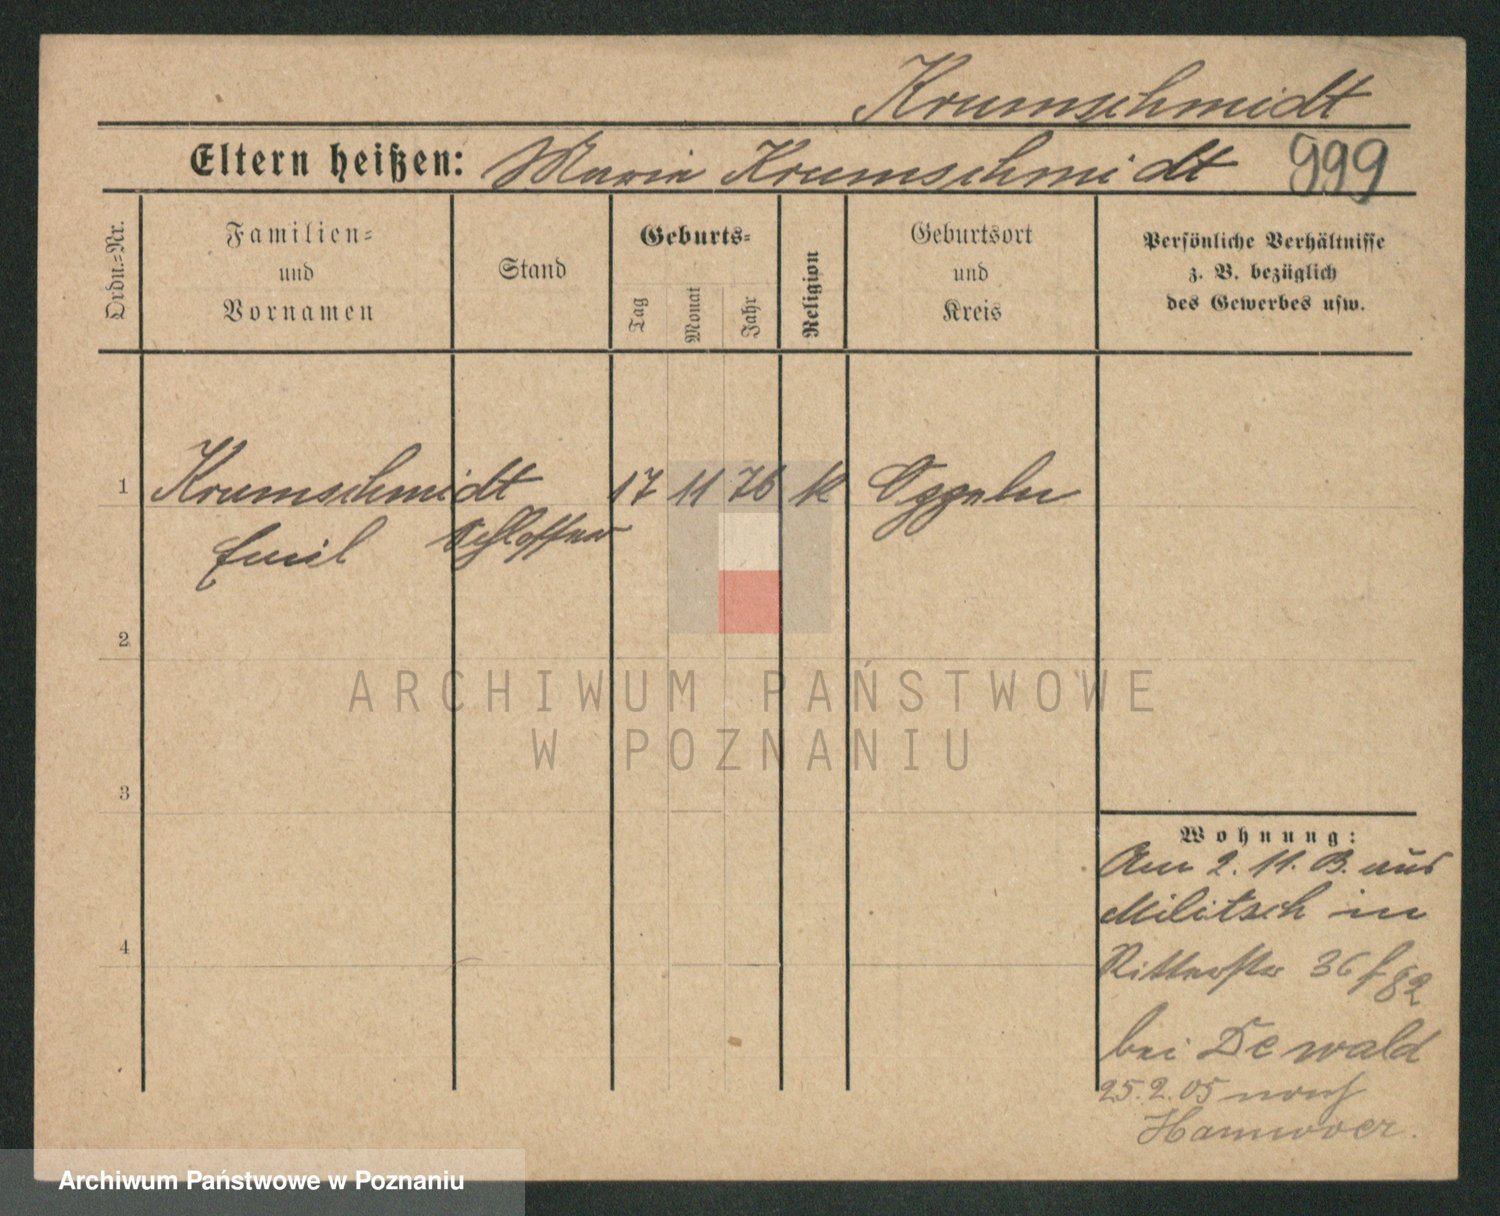 Krumschmidt
Eltern heißen: Maria Krumschmidt 999
Ordn.=Nr.
Familien=
und
Vornamen
Stand
Geburts=
Tag
Monat
Jahr
Religion
Geburtsort
und
Kreis
Persönliche Verhältnisse
z. B. bezüglich
des Gewerbes usw.
1 Krumschmidt 17 11 76 k
Emil Schlosser
2
3
4
ARCHIWUM PAŃSTWOWE
W POZNANIU
Wohnung:
Am 2. 11. aus
Militsch in
Ritterstr 36
bei Dewald
25.2.05 nach
Hannover.
Archiwum Państwowe w Poznaniu